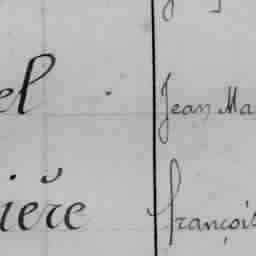 el Jean Ma
ière françois